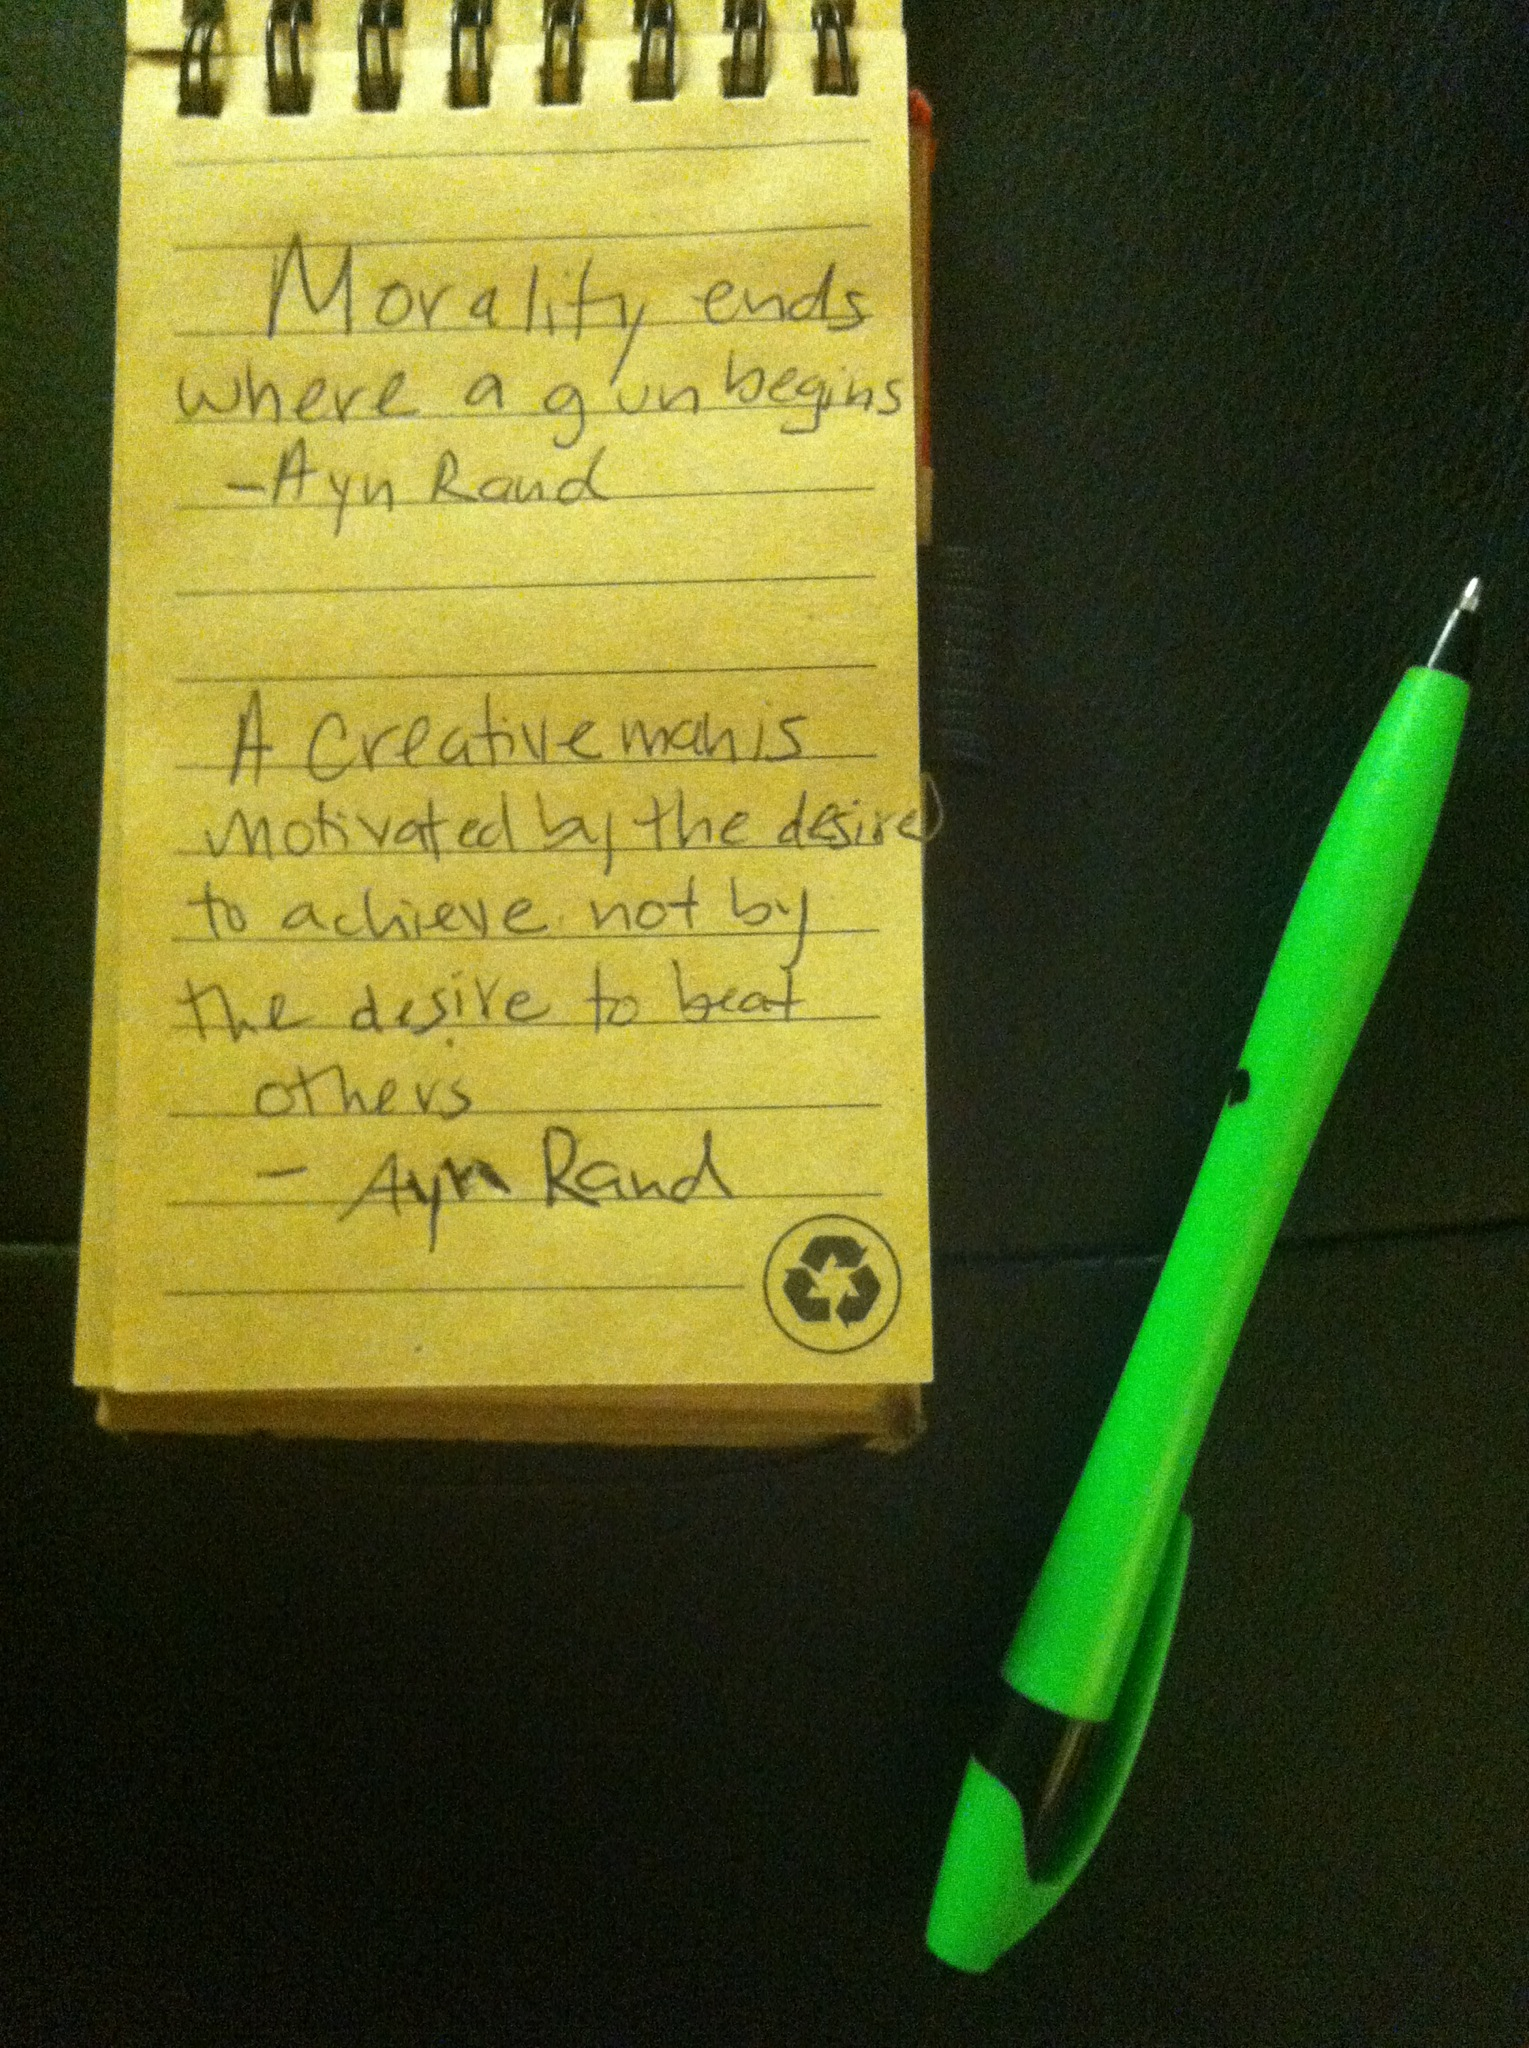 Morality ends
where a gun begins
-Ayn Rand
A Creative man is
motivated by the desire
to achieve not by
the desire to beat
others
- Ayn Rand